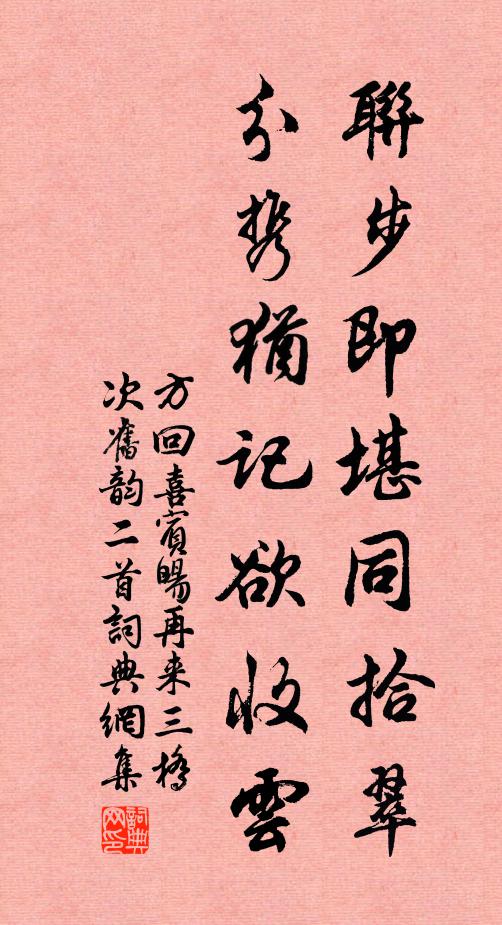 聯步即堪同拾翠
分携猶記欲收雲
方回喜賓暘再来三橋
次舊韵二首詞典網集
詞典网印